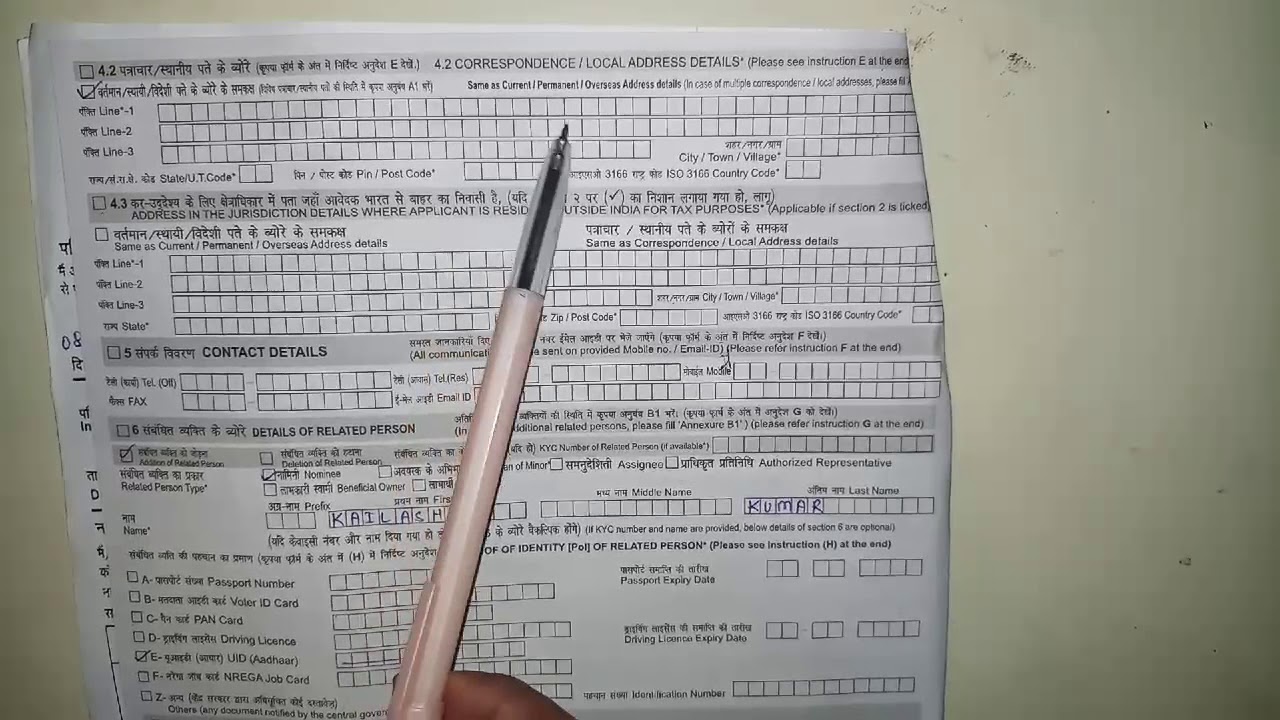 4.2 पत्राचार/स्थानीय पते के ब्योरे (कृपया फ़ॉर्म के अंत में निर्दिष्ट अनुदेश E देखें.) 4.2 CORRESPONDENCE / LOCAL ADDRESS DETAILS* (Please see instruction E at the end
वर्तमान/स्थायी/विदेशी पते के ब्योरे के समकक्ष Same as Current / Permanent / Overseas Address details (In case of multiple correspondence / local addresses, please fill
पंक्ति Line*-1
पंक्ति Line-2
पंक्ति Line-3 शहर/नगर/ग्राम
City / Town / Village*
राज्य/सं.रा.क्षे. कोड State/U.T.Code* पिन / पोस्ट कोड Pin / Post Code* आइएसओ 3166 राष्ट्र कोड ISO 3166 Country Code*
4.3 कर-उद्देश्य के लिए क्षेत्राधिकार में पता जहाँ आवेदक भारत से बाहर का निवासी है, (यदि २ पर (✓) का निशान लगाया गया हो, लागू)
ADDRESS IN THE JURISDICTION DETAILS WHERE APPLICANT IS RESID OUTSIDE INDIA FOR TAX PURPOSES* (Applicable if section 2 is ticked)
वर्तमान/स्थायी/विदेशी पते के ब्योरे के समकक्ष पत्राचार / स्थानीय पते के ब्योरों के समकक्ष
Same as Current / Permanent / Overseas Address details Same as Correspondence / Local Address details
पंक्ति Line*-1
पंक्ति Line-2
पंक्ति Line-3 शहर/नगर/ग्राम City / Town / Village*
राज्य State* Zip / Post Code* आइएसओ 3166 राष्ट्र कोड ISO 3166 Country Code*
08
5 संपर्क विवरण CONTACT DETAILS समस्त जानकारियां नंबर ईमेल आइडी पर भेजे जाएंगे (कृपया फ़ॉर्म के अंत में निर्दिष्ट अनुदेश F देखें।)
(All communicat sent on provided Mobile no. / Email-ID) (Please refer instruction F at the end)
टेली (कार्या) Tel. (Off) टेली (आवास) Tel.(Res) मोबाईल Mobile
फ़ैक्स FAX ई-मेल आइडी Email ID
6 संबंधित व्यक्ति के ब्योरे DETAILS OF RELATED PERSON व्यक्तियों की स्थिति में कृपया अनुबंध B1 भरें। (कृपया फ़ॉर्म के अंत में अनुदेश G को देखें।)
(In dditional related persons, please fill 'Annexure B1') (please refer instruction G at the end)
संबंधित व्यक्ति को जोड़ना संबंधित व्यक्ति को हटाना
Addition of Related Person Deletion of Related Person KYC Number of Related Person (if available*)
संबंधित व्यक्ति का प्रकार नामिनी Nominee अवयस्क के an of Minor समनुदेशिती Assignee प्राधिकृत प्रतिनिधि Authorized Representative
Related Person Type* लाभकारी स्वामी Beneficial Owner
अग्र-नाम Prefix प्रथम नाम First मध्य नाम Middle Name अंतिम नाम Last Name
नाम KAILASH KUMAR
Name*
(यदि केवाइसी नंबर और नाम दिया गया हो के ब्योरे वैकल्पिक होंगे) (If KYC number and name are provided, below details of section 6 are optional)
संबंधित व्यक्ति की पहचान का प्रमाण (कृपया फ़ॉर्म के अंत में (H) में निर्दिष्ट अनुदेश OF OF IDENTITY [PoI] OF RELATED PERSON* (Please see Instruction (H) at the end)
A- पासपोर्ट संख्या Passport Number पासपोर्ट समाप्ति की तारीख
Passport Expiry Date
B- मतदाता आइडी कार्ड Voter ID Card
C- पैन कार्ड PAN Card
D- ड्राइविंग लाइसेंस Driving Licence ड्राइविंग लाइसेंस की समाप्ति की तारीख
Driving Licence Expiry Date
E- यूआइडी (आधार) UID (Aadhaar)
F- नरेगा जॉब कार्ड NREGA Job Card
Z- अन्य (केंद्र सरकार द्वारा अधिसूचित कोई दस्तावेज) पहचान संख्या Identification Number
Others (any document notified by the central gover